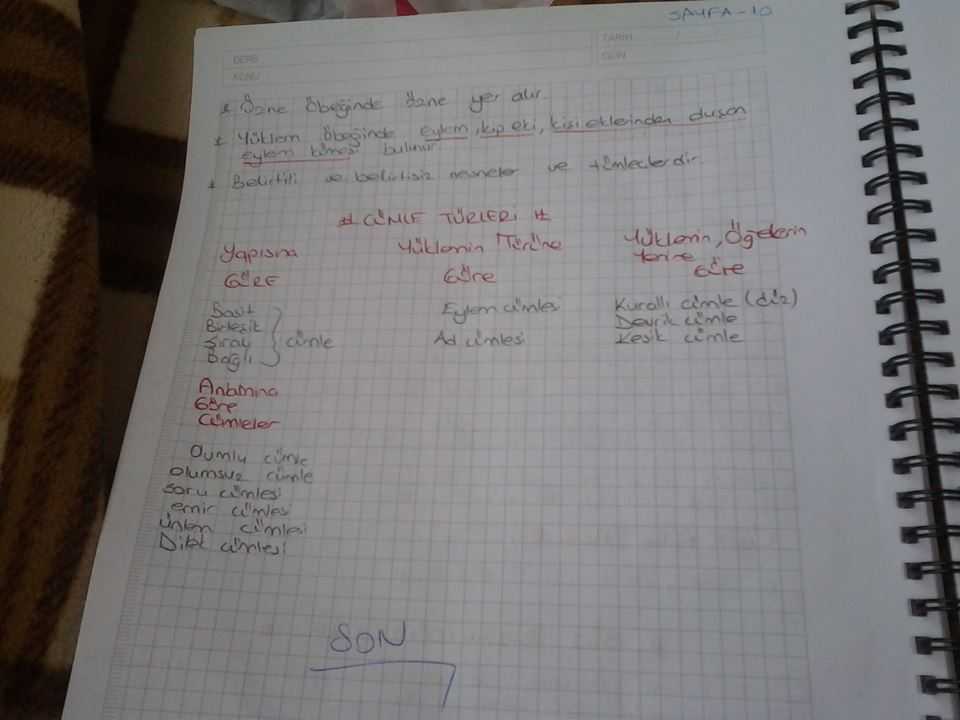 SAYFA-10
DERS
TARİH / /
KONU
* Özne Öbeğinde özne yer alır.
* Yüklem öbeğinde eylem, kip eki, kişi eklerinden düşen
eylem kümesi bulunur.
* Belirtili ve belirtisiz nesneler ve tümleçlerdir.
** CÜMLE TÜRLERİ **
Yapısına GÖRE
Yüklemin Türüne Göre
Yüklemin, Öğelerin Yerine Göre
Basit
Birleşik
Sıralı
Bağlı
Cümle
Eylem cümlesi
Ad cümlesi
Kurallı cümle (düz)
Devrik cümle
Kesik cümle
Anlamına
Göre
Cümleler
Oumlu cümle
Olumsuz cümle
Soru cümlesi
emir cümlesi
ünlem cümlesi
Dilek cümlesi
SON